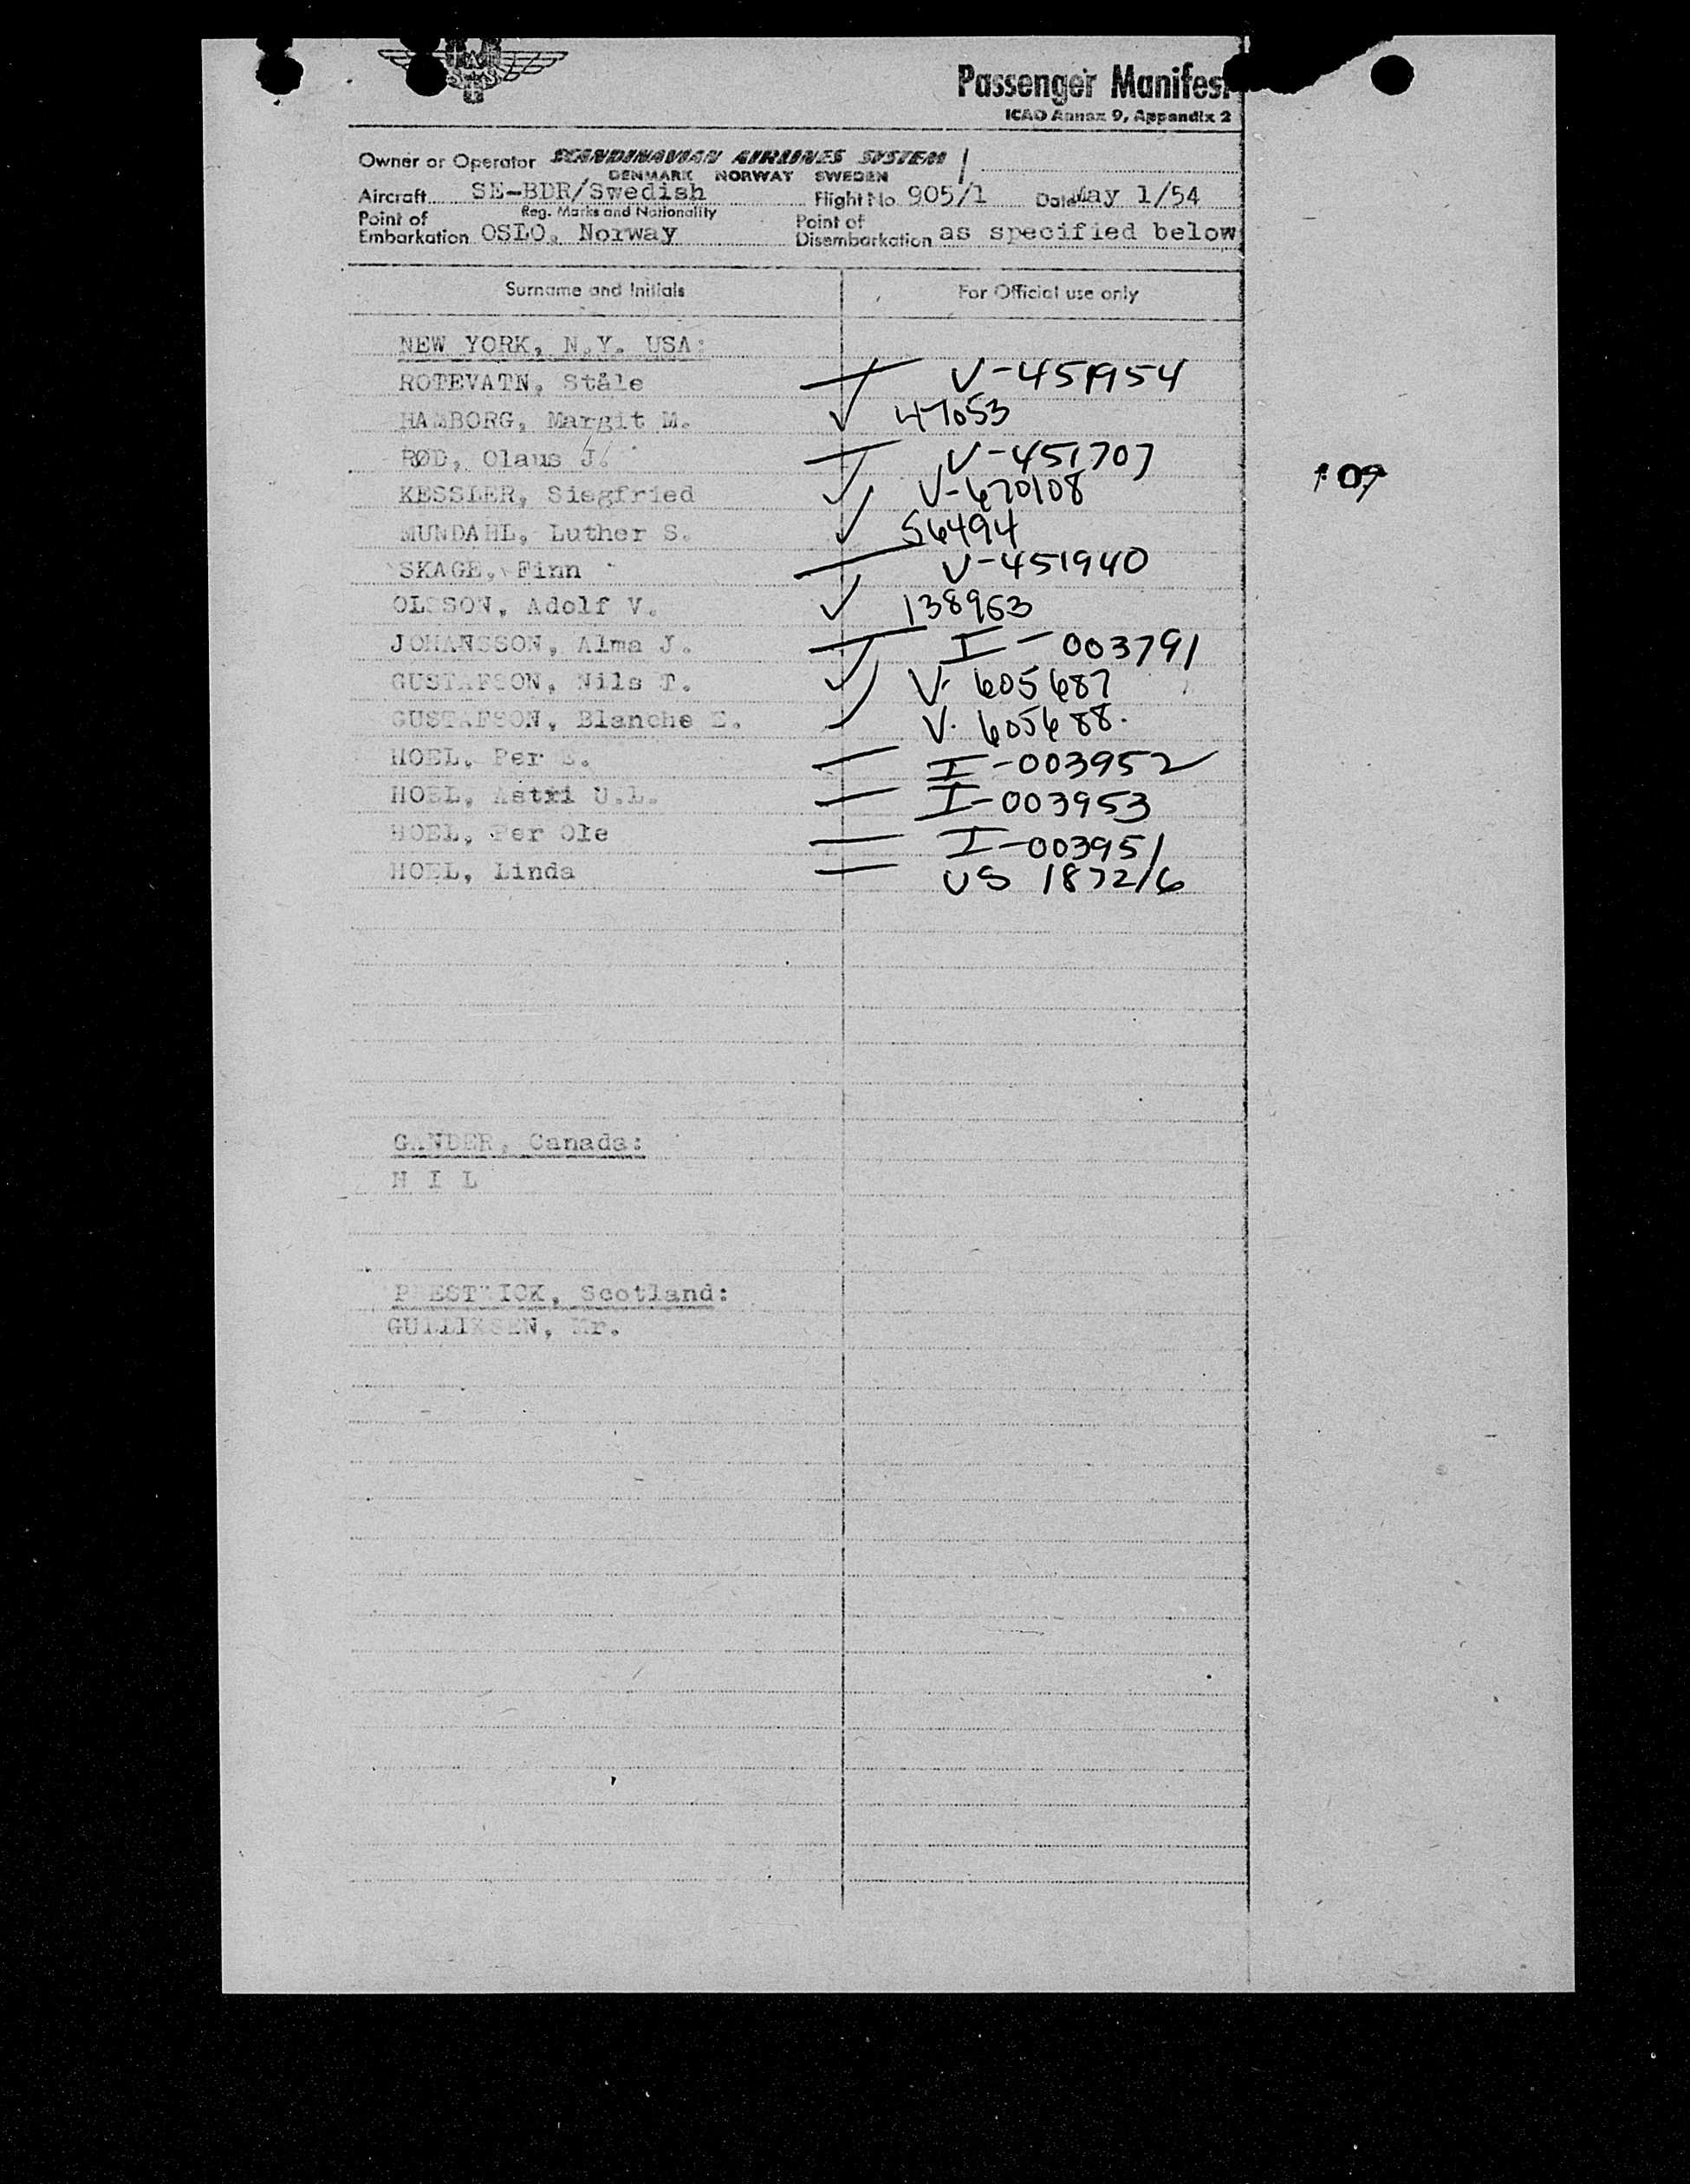 SAS
Passenger Manifes
ICAO Annex 9, Appendix 2
Owner or Operator SCANDINAVIAN AIRLINES SYSTEM /
DENMARK NORWAY SWEDEN
Aircraft SE-BDR/Swedish Flight No. 905/1 Date May 1/54
Reg. Marks and Nationality
Point of Embarkation OSLO, Norway Point of Disembarkation as specified below
Surname and Initials For Official use only
NEW YORK, N.Y. USA:
ROTEVATN, Ståle V-451954
HAMBORG, Margit M. 47053
RØD, Olaus J. V-451707
KESSLER, Siegfried V-670108
109
MUNDAHL, Luther S. 56494
SKAGE, Finn V-451940
OLSSON, Adolf V. 138963
JOHANSSON, Alma J. I-003791
GUSTAFSON, Nils T. V. 605687
GUSTAFSON, Blanche E. V. 605688.
HOEL, Per E. I-003952
HOEL, Astri U.L. I-003953
HOEL, Per Ole I-003951
HOEL, Linda US 187216
GANDER, Canada:
N I L
PRESTWICK, Scotland:
GULLIKSEN, Mr.